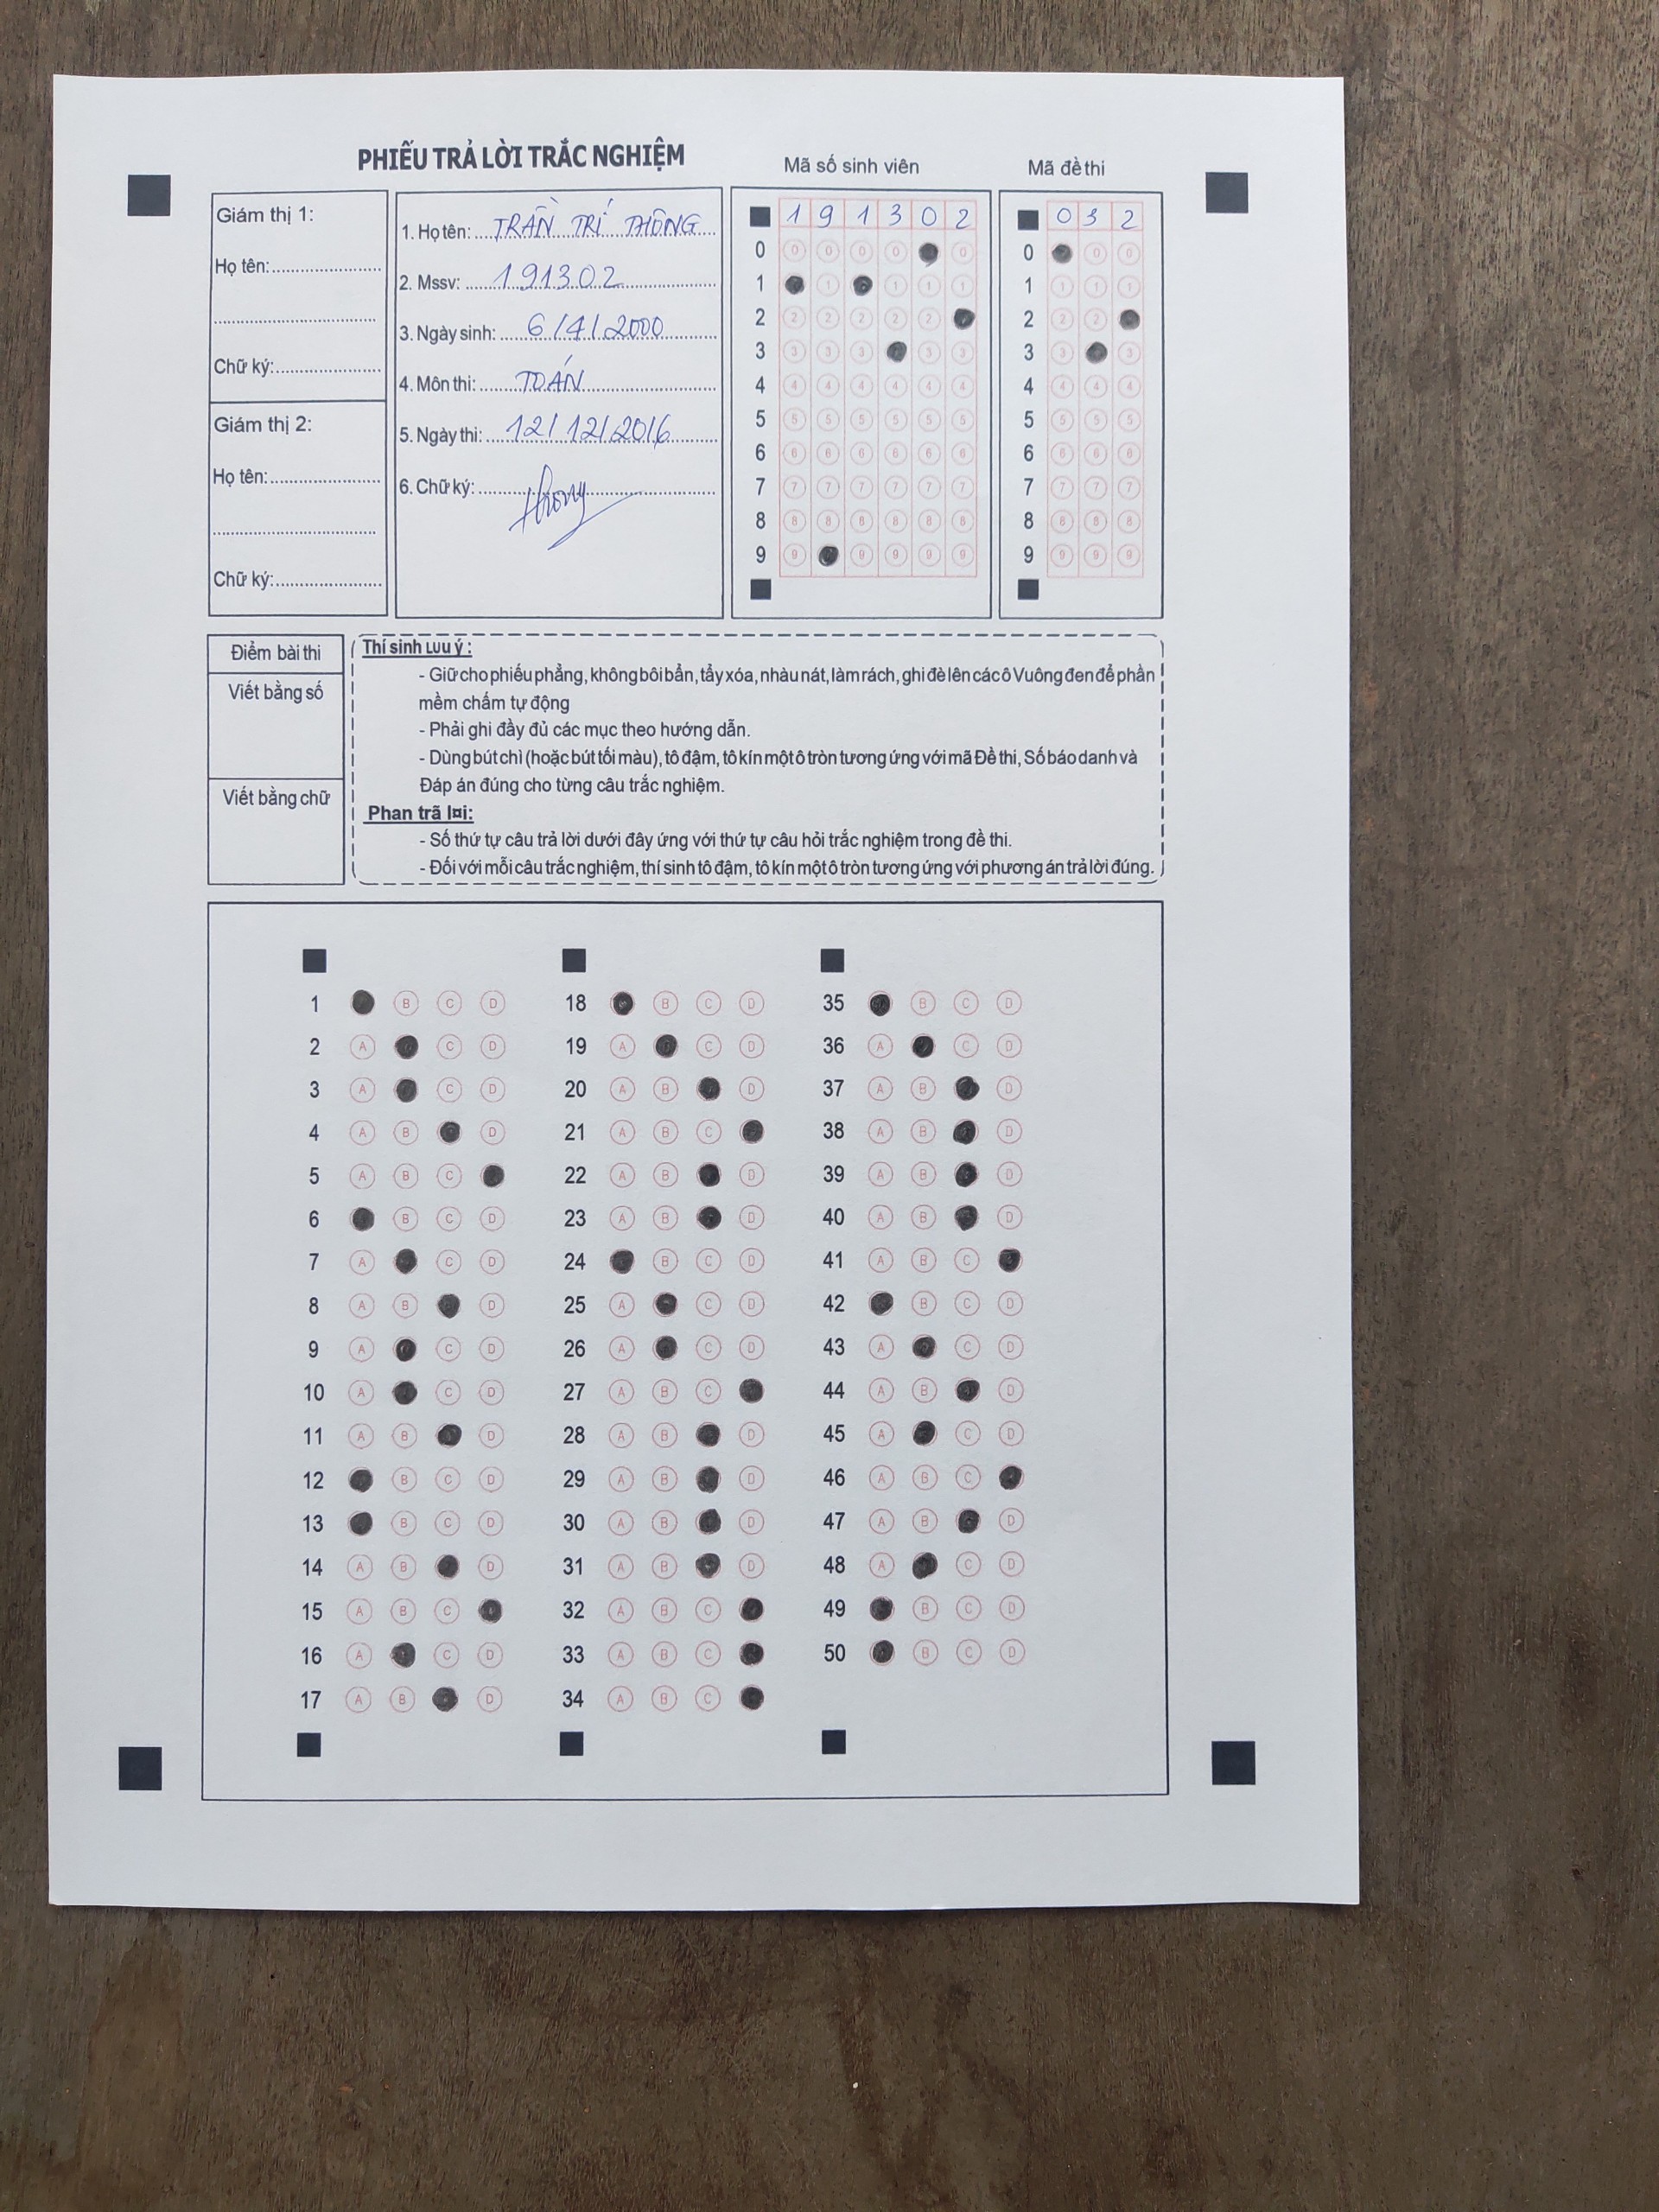 PHIẾU TRẢ LỜI TRẮC NGHIỆM
Mã số sinh viên
Mã đề thi
Giám thị 1:
Họ tên:
Chữ ký:
Giám thị 2:
Họ tên:
Chữ ký:
1. Họ tên: TRẦN TRÍ THÔNG
2. Mssv: 191302
3. Ngày sinh: 6/4/2000
4. Môn thi: TOÁN
5. Ngày thi: 12/12/2016
6. Chữ ký: thong
1 9 1 3 0 2
0 0 0 0 0
1 1 1 1 1
2 2 2 2 2 2
3 3 3 3 3 3
4 4 4 4 4 4 4
5 5 5 5 5 5 5
6 6 6 6 6 6 6
7 7 7 7 7 7 7
8 8 8 8 8 8 8
9 9 9 9 9 9
0 3 2
0 0 0
1 1 1 1
2 2 2
3 3 3
4 4 4 4
5 5 5 5
6 6 6 6
7 7 7 7
8 8 8 8
9 9 9 9
Điểm bài thi
Viết bằng số
Viết bằng chữ
Thí sinh Lưu ý :
- Giữ cho phiếu phẳng, không bôi bẩn, tẩy xóa, nhàu nát, làm rách, ghi đè lên các ô Vuông đen để phần
mềm chấm tự động
- Phải ghi đầy đủ các mục theo hướng dẫn.
- Dùng bút chì (hoặc bút tối màu), tô đậm, tô kín một ô tròn tương ứng với mã Đề thi, Số báo danh và
Đáp án đúng cho từng câu trắc nghiệm.
Phan trã l¤i:
- Số thứ tự câu trả lời dưới đây ứng với thứ tự câu hỏi trắc nghiệm trong đề thi.
- Đối với mỗi câu trắc nghiệm, thí sinh tô đậm, tô kín một ô tròn tương ứng với phương án trả lời đúng.
1 B C D
2 A C D
3 A C D
4 A B D
5 A B C
6 B C D
7 A C D
8 A B D
9 A C D
10 A C D
11 A B D
12 B C D
13 B C D
14 A B D
15 A B C
16 A C D
17 A B D
18 B C D
19 A C D
20 A B D
21 A B C
22 A B D
23 A B D
24 B C D
25 A C D
26 A C D
27 A B C
28 A B D
29 A B D
30 A B D
31 A B D
32 A B C
33 A B C
34 A B C
35 B C D
36 A C D
37 A B D
38 A B D
39 A B D
40 A B D
41 A B C
42 B C D
43 A C D
44 A B D
45 A C D
46 A B C
47 A B D
48 A C D
49 B C D
50 B C D